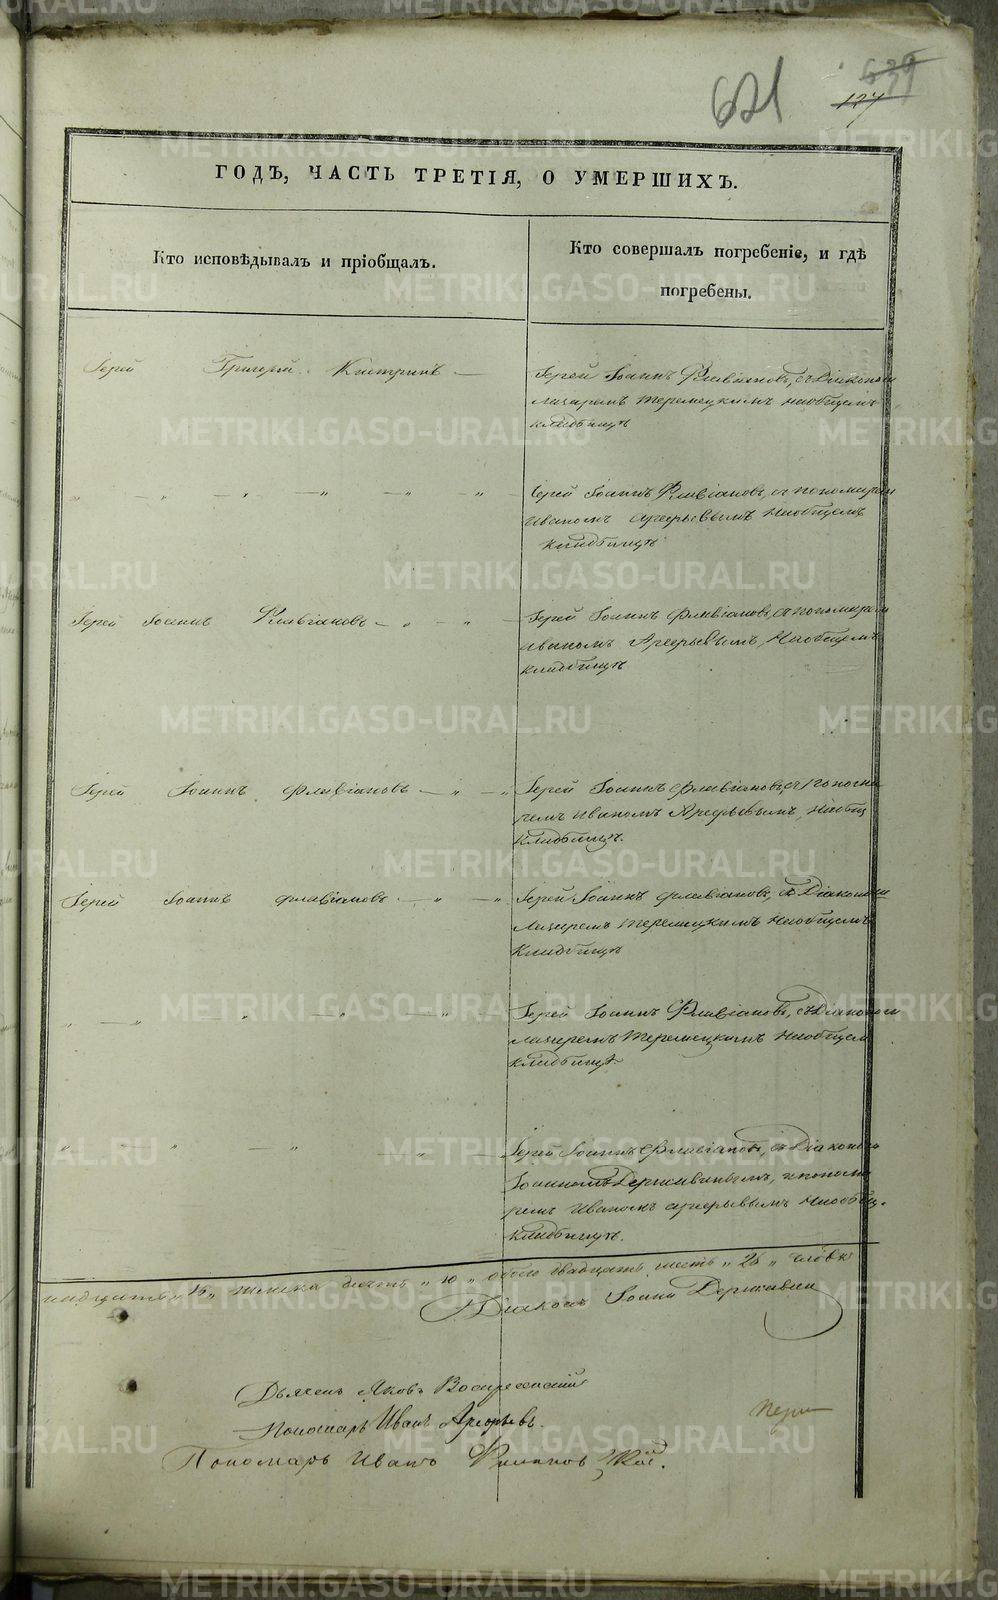 621
639
127
ГОДЪ, ЧАСТЬ ТРЕТІЯ, О УМЕРШИХЪ.
Кто исповѣдывалъ и пріобщалъ.
Кто совершалъ погребеніе, и гдѣ
погребены.
Іерей Григорій
Іерей Іоаннъ Флавіановъ, съ Діакономъ
Лазаремъ Теремецкимъ наобщемъ
кладбищѣ
Іерей Іоаннъ Флавіановъ, съ пономаремъ
Иваномъ Арефьевымъ наобщемъ
кладбищѣ
Іерей Іоаннъ Флавіановъ
Іерей Іоаннъ Флавіановъ, съ пономаремъ
Иваномъ Арефьевымъ, наобщемъ
кладбищѣ
Іерей Іоаннъ Флавіановъ
Іерей Іоаннъ Флавіановъ, съ понома
ремъ Иваномъ Арефьевымъ, наобщ
кладбищѣ.
Іерей Іоаннъ Флавіановъ
Іерей Іоаннъ Флавіановъ, съ Діакономъ
Лазаремъ Теремецкимъ наобщемъ
кладбищѣ
Іерей Іоаннъ Флавіановъ, съ Діакономъ
Лазаремъ Теремецкимъ наобщем
кладбищѣ.
Іерей Іоаннъ Флавіановъ, съ Діаконом
Іоанномъ Державинымъ, и понома
ремъ Иваномъ Арефьевымъ наобщ.
кладбищѣ.
надцать 15, женска 10, обоего двадцать шесть, 26, человѣкъ
Діаконъ Іоаннъ Державинъ
Дьячекъ Яковъ Воскресенскій
Пономарь Иванъ Арефьевъ.
Пономарь Иванъ
METRIKI.GASO-URAL.RU